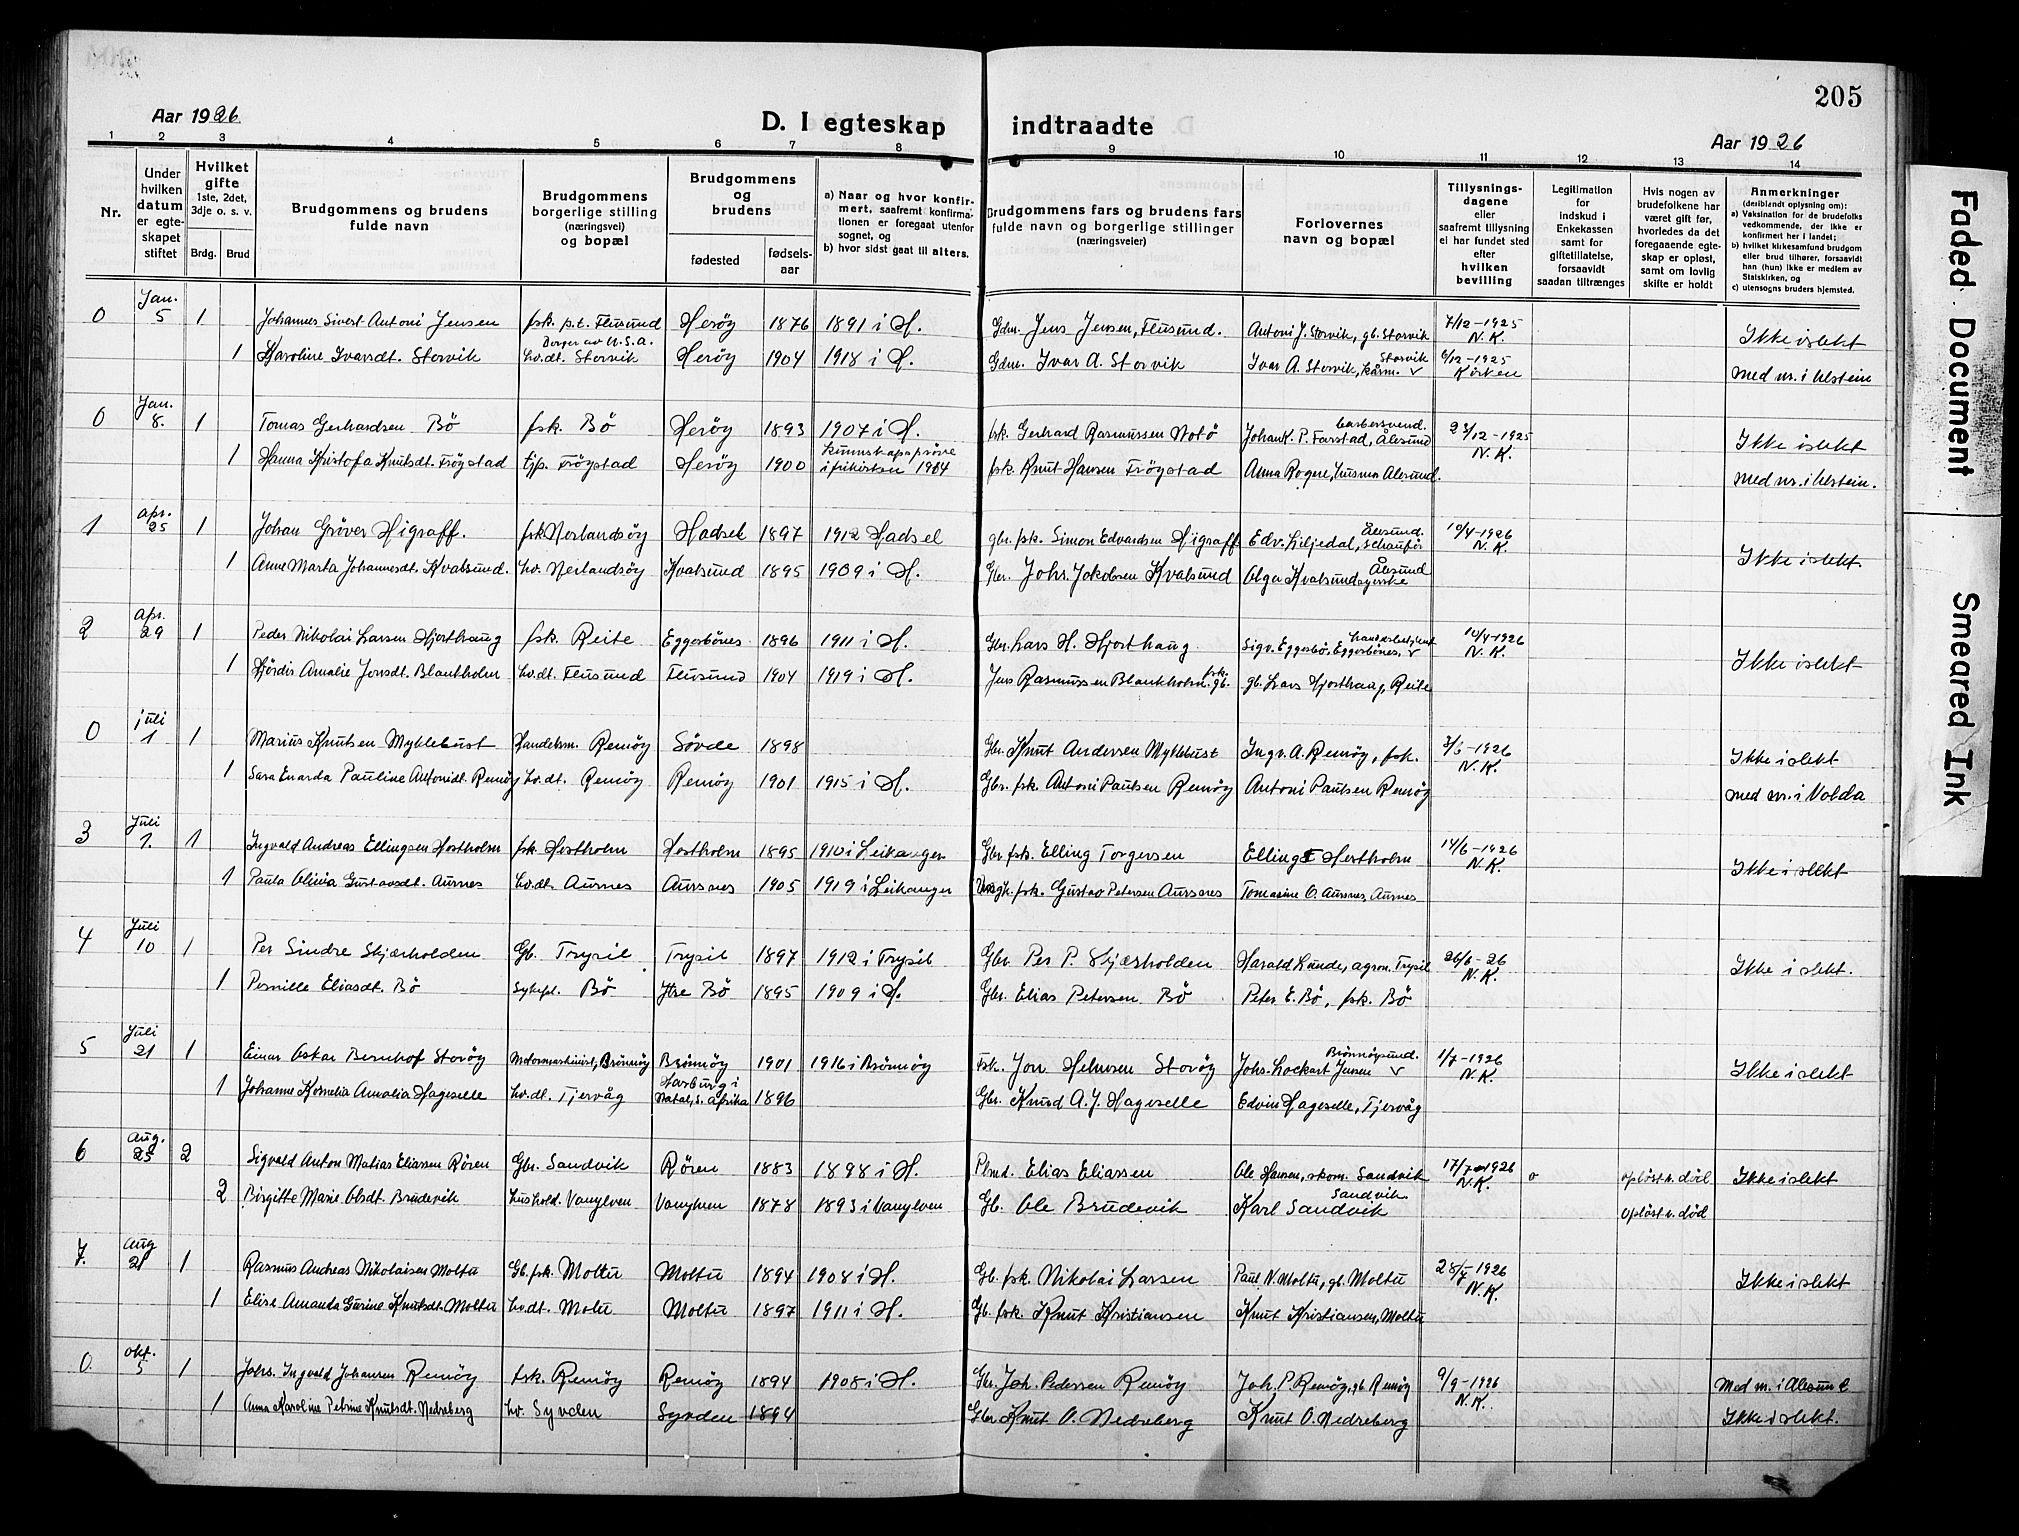 205
Aar 1926
D. I egteskap indtraadte
Aar 1926
1 2 3 4 5 6 7 8 9 10 11 12 13 14
Nr.
Under hvilken datum er egteskapet stiftet
Hvilket gifte 1ste, 2det, 3dje o. s. v.
Brdg. Brud
Brudgommens og brudens fulde navn
Brudgommens borgerlige stilling (næringsvei) og bopæl
Brudgommens og brudens
fødested
fødselsaar
a) Naar og hvor konfirmert, saafremt konfirmationen er foregaat utenfor sognet, og
b) hvor sidst gaat til alters.
Brudgommens fars og brudens fars fulde navn og borgerlige stillinger (næringsveier)
Forlovernes navn og bopæl
Tillysningsdagene eller saafremt tillysning ei har fundet sted efter hvilken bevilling
Legitimation for indskud i Enkekassen samt for giftetillatelse, forsaavidt saadan tiltrænges
Hvis nogen av brudefolkene har været gift før, hvorledes da det foregaaende egteskap er opløst, samt om lovlig skifte er holdt
Anmerkninger (deriblandt oplysning om):
a) Vaksination for de brudefolks vedkommende, der ikke er konfirmert her i landet;
b) hvilket kirkesamfund brudgom eller brud tilhører, forsaavidt han (hun) ikke er medlem av Statskirken, og
c) utensogns bruders hjemsted.
0 Jan. 5 1 Johannes Sivert Antoni Jensen fsk. p.t. Flusund Herøy 1876 1891 i H. Gdm. Jens Jensen, Flusund. Antoni J. Storvik, gb. Storvik 7/12-1925 N.K. Ikke i slekt
Borger av U.S.A.
1 Karoline Ivarsdt. Storvik hv.dt. Storvik Herøy 1904 1918 i H. Gdm. Ivar A. Storvik Ivar A. Storvik, Storvik 6/12-1925 Kirken med nr. i Ulstein
0 Jan. 8. 1 Tomas Gerhardsen Bö fsk. Bö Herøy 1893 1907 i H. fsk. Gerhard Rasmussen Johan K. P. Farstad, barbersvend. Ålesund 23/12-1925 N.K. Ikke i slekt
1 Hanna Kristofa Knutsdt. Fröystad tjp. Fröystad Herøy 1900 kunnskapsprøve i frikirken 1914 fsk. Knut Hansen Fröystad Anna Rogne, husmor Ålesund. med nr. i Ulstein.
1 Apr. 25 1 Johan Gröver Higraff. fsk. Nerlandsöy Hadsel 1897 1912 Hadsel gbr. fsk. Simon Edvardsen Higraff Edv. Liljedal, Ålesund. Schaufør 10/4-1926 N.K. Ikke i slekt.
1 Anne Marta Johannesdt. Kvalsund. hv. Nerlandsöy Kvalsund 1895 1909 i H. Gbr. Johs. Jakobsen Kvalsund Olga Kvalsund Ålesund
2 Apr. 29 1 Peder Nikolai Larsen Hjorthaug fsk. Reite Eggesbönes 1896 1911 i H. Gbr. Lars H. Hjorthaug Sigv. Eggesbö, Eggesbönes, 10/4-1926 N.K. Ikke i slekt
1 Hjördis Amalie Jensdt. Blankholm hv.dt. Flusund Flusund 1904 1919 i H. Jens Rasmussen Blankholm, fsk. gb. gb. Lars Hjorthaug, Reite
0 juli 1 1 Marius Knutsen Myklebust Handelsm. Remöy Sövde 1898 Gbr. Knut Andersen Myklebust Ingv. A. Remöy, fsk. 3/6-1926 N.K. Ikke i slekt
1 Sara Enarda Pauline Antonidt. Remöy hv.dt. Remöy Remöy 1901 1915 i H. Gbr. fsk. Antoni Paulsen Remöy Antoni Paulsen Remöy med nr. i Volda
3 Juli 1. 1 Ingvald Andreas Ellingsen Hestholm fsk. Hestholm Hestholm 1895 1910 i Leikanger Gbr. fsk. Elling Torgersen Elling T Hestholm 14/6-1926 N.K. Ikke i slekt
1 Paula Olivia Gustavsdt. Aurnes hv.dt. Aurnes Aursnes 1905 1919 i Leikanger fsk. Gustav Petersen Aursnes Tomasine O. Aursnes, Aurnes
4 Juli 10 1 Per Sindre Skjærholden Gb. Trysil Trysil 1897 1912 i Trysil Gbr. Per P. Skjærholden Harald Lunde, agron. Trysil 26/6-26 N.K. Ikke i slekt.
1 Pernille Eliasdt. Bö Sykepl. Bö Ytre Bö 1895 1909 i H. Gbr. Elias Petersen Bö Peter E. Bö, fsk. Bö
5 Juli 21 1 Einar Oskar Bernhof Storöy Motormaskinist, Brönnöy Brönnöy 1901 1916 i Brönnöy Fsk. Jon Helmersen Storöy Johs. Lockart Jensen Brönnöysund. 1/7-1926 N.K. Ikke i slekt
1 Johanne Kornelia Amalia Hageselle hv.dt. Tjervåg Harburg i Natal, S. Afrika 1896 Gbr. Knud A. J. Hageselle Edvin Hageselle, Tjervåg
6 Aug. 25 2 Sigvald Anton Matias Eliassen Rören Gbr. Sandvik Rören 1883 1898 i H. Plmd. Elias Eliassen Ole Hansen, skom. Sandvik 17/7-1926 N.K. o oplöst v. död Ikke i slekt
2 Birgitte Marie Olsdt. Brudevik hushold. Vanylven Vanylven 1878 1893 i Vanylven Gb. Ole Brudevik Karl Sandvik Sandvik. oplöst v. död
7. Aug 21 1 Rasmus Andreas Nikolaisen Moltu Gb. fsk. Moltu Moltu 1894 1908 i H. Gb. fsk. Nikolai Larsen Paul N. Moltu, gb. Moltu 28/7-1926 N.K. Ikke i slekt
1 Elise Amanda Gurine Knutsdt. Moltu hv.dt. Moltu Moltu 1897 1911 i H. Gb. fsk. Knut Kristiansen Knut Kristiansen, Moltu
0. okt. 5 1 Johs. Ingvald Johansen Remöy fsk. Remöy Remöy 1894 1908 i H. Gbr. Joh. Pedersen Remöy Joh. P. Remöy, gb. Remöy 9/9-1926 N.K. Med nr. i Ålesund
1 Anna Karoline Petrine Knutsdt. Nedreberg hv. Syvden Syvden 1894 Gbr. Knut O. Nedreberg Knut O. Nedreberg Ikke i slekt.
Faded Document
Smeared Ink